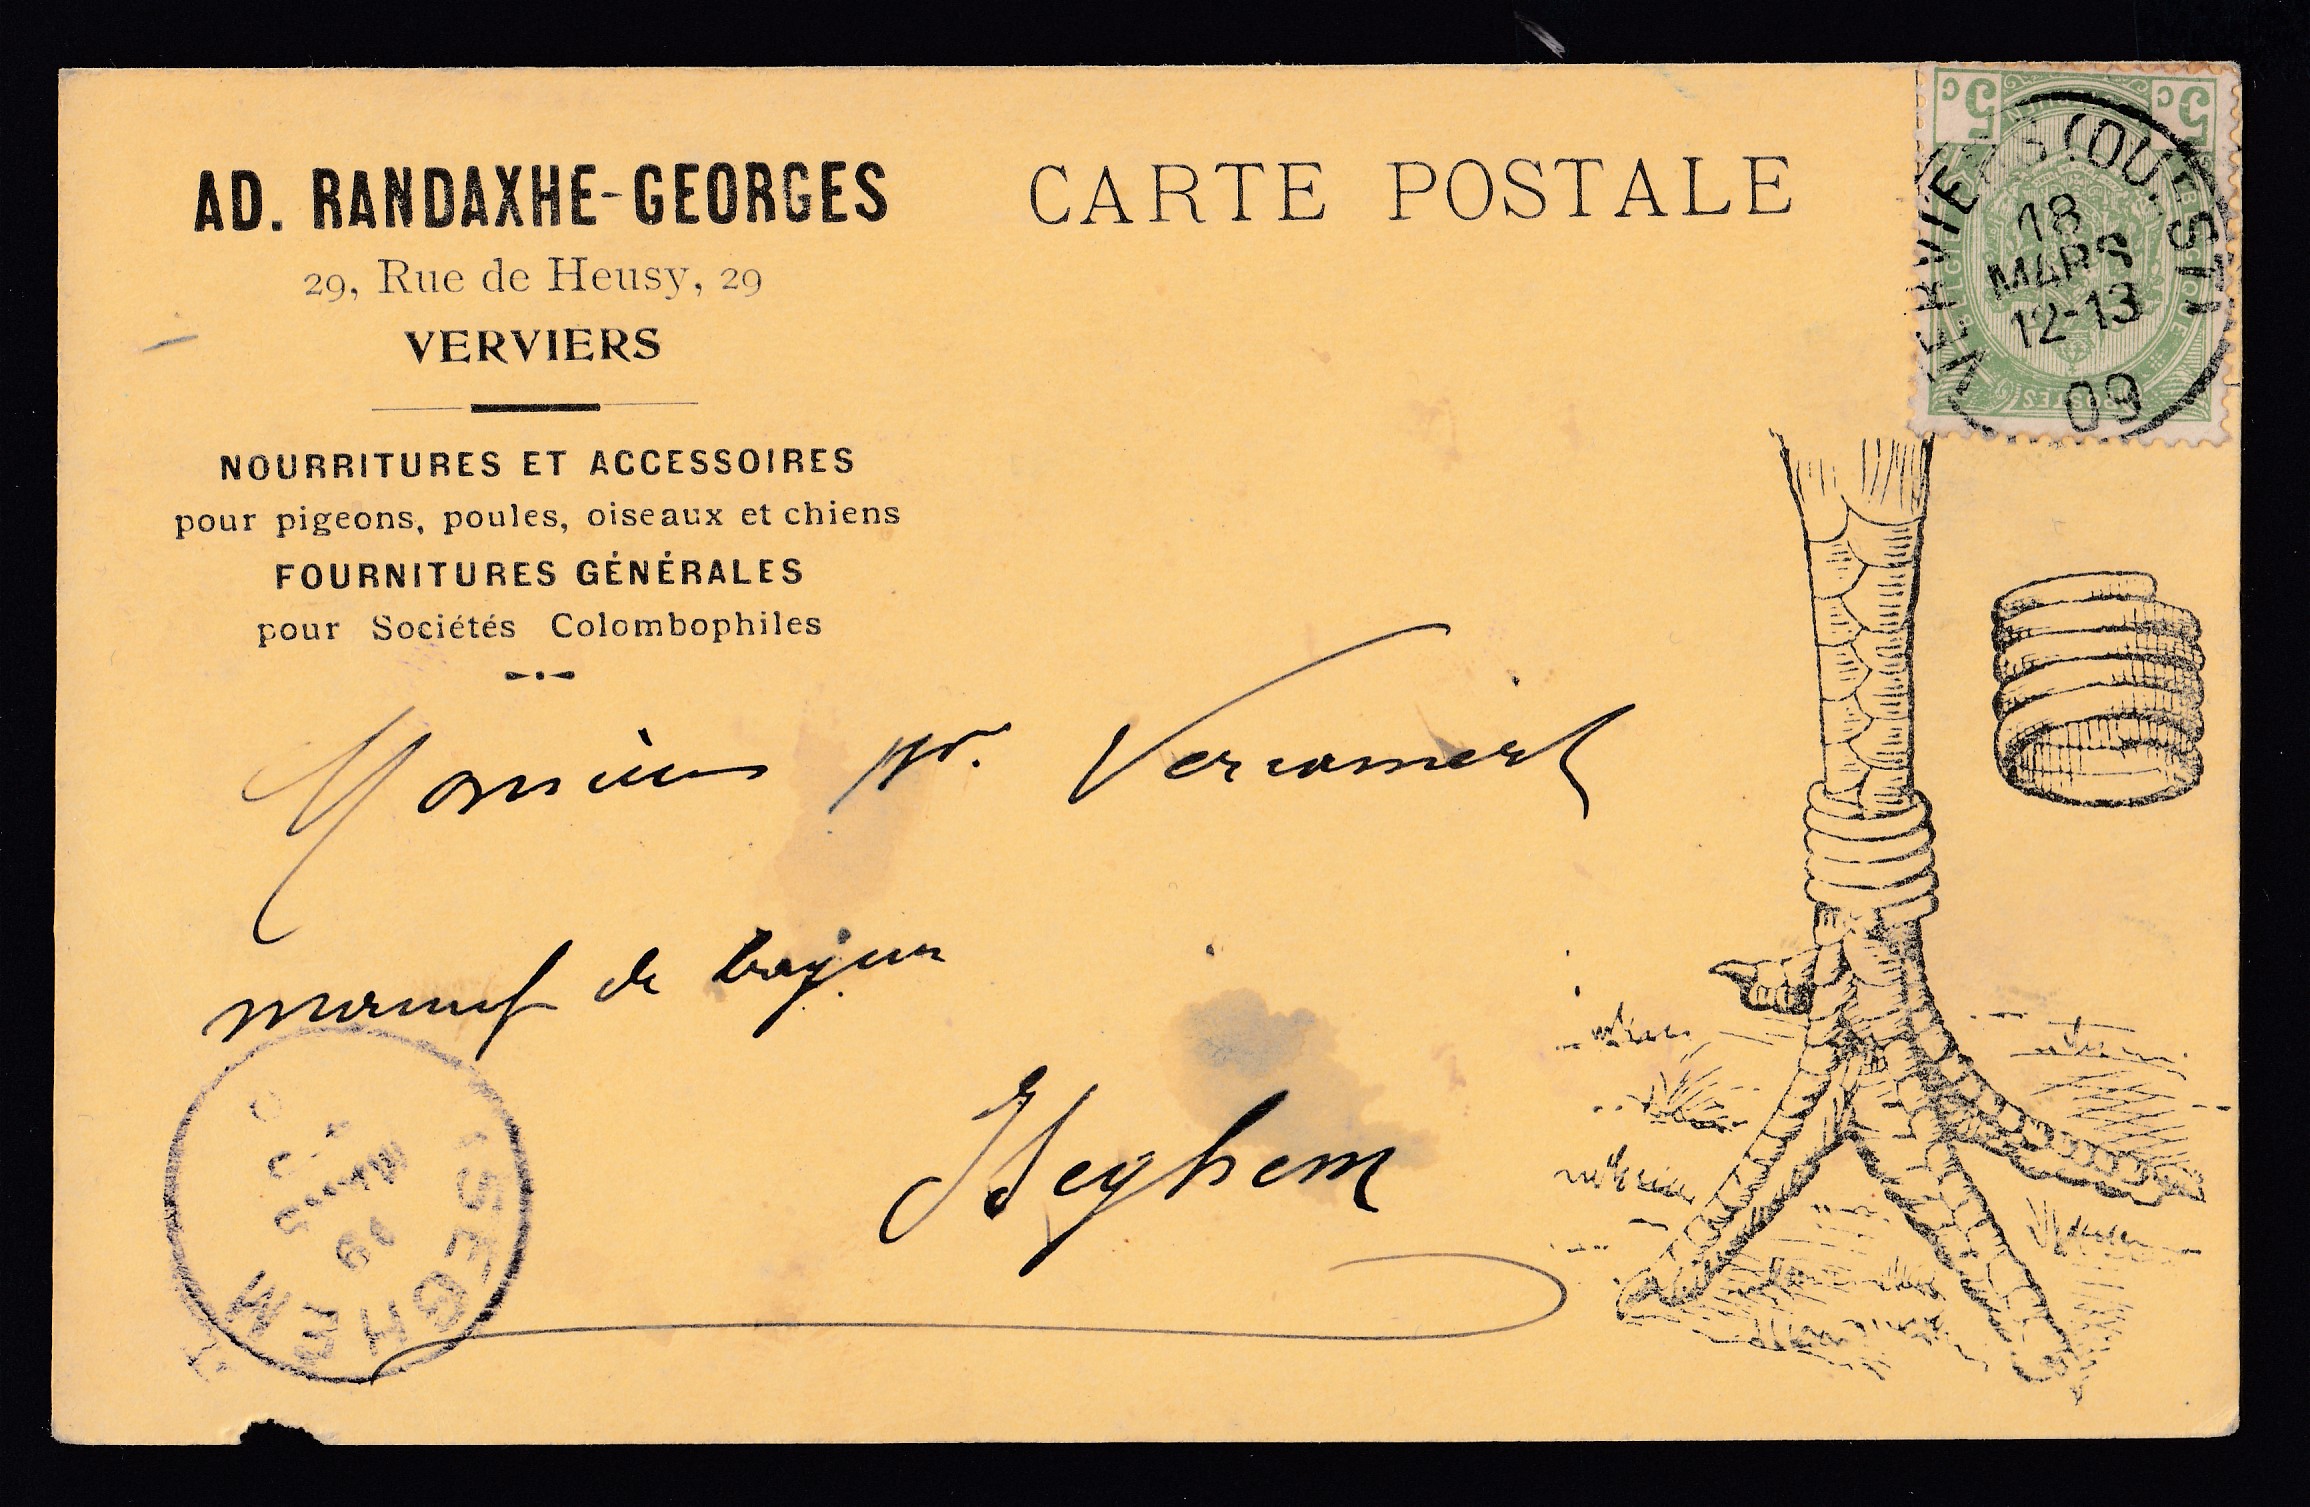 AD. RANDAXHE-GEORGES
29, Rue de Heusy, 29
VERVIERS
NOURRITURES ET ACCESSOIRES
pour pigeons, poules, oiseaux et chiens
FOURNITURES GÉNÉRALES
pour Sociétés Colombophiles
CARTE POSTALE
5c 5c
BELGIQUE
POSTES
VERVIERS (OUEST)
18
MARS
12-13
09
Monsieur
manuf de
Iseghem
ISEGHEM
19